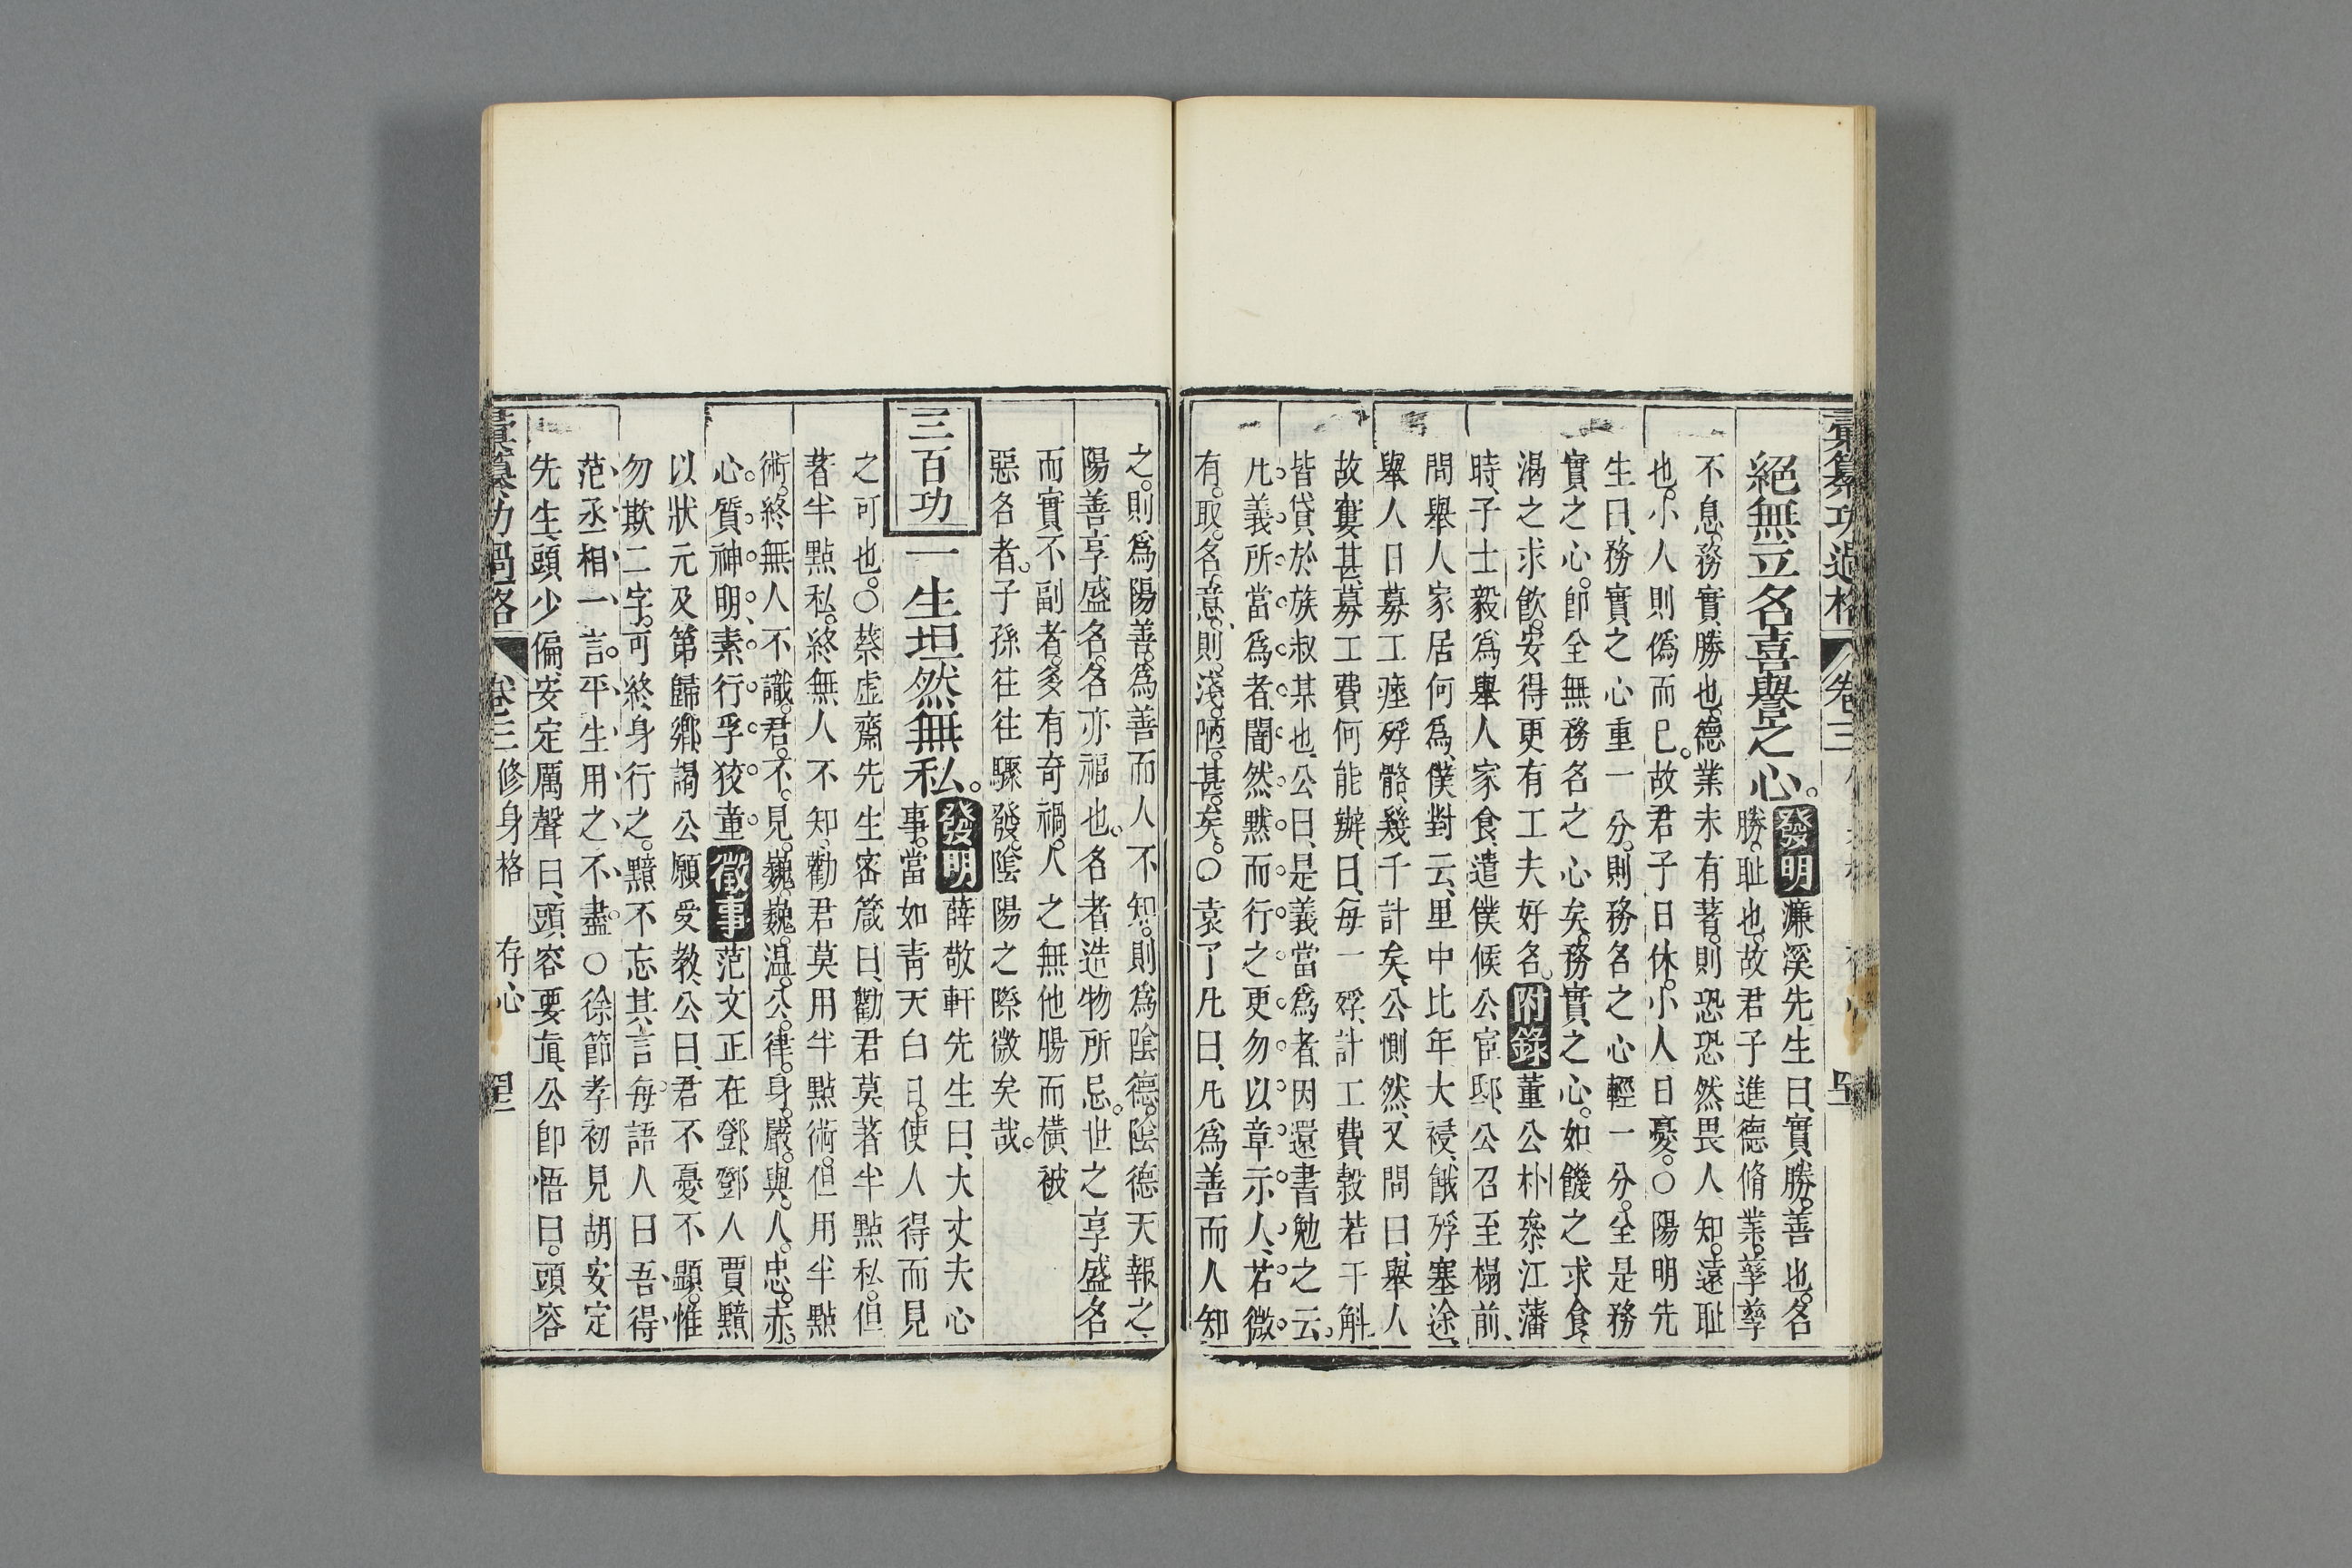 彙纂功過格 卷三
絕無立名喜譽之心。發明濂溪先生曰、實勝。善也。名
勝。耻也。故君子進德脩業。孳孳
不息。務實勝也。德業未有著。則恐恐然畏人知。遠耻
也。小人則僞而已。故君子日休。小人日憂。○陽明先
生曰、務實之心重一分。則務名之心輕一分。全是務
實之心。卽全無務名之心矣。務實之心。如饑之求食、
渴之求飲。安得更有工夫好名。附錄董公朴叅江藩
時、子士毅爲舉人家食、遣僕候公宦邸、公召至榻前、
問舉人家居何爲、僕對云、里中比年大祲、餓殍塞途、
舉人日募工瘞殍骼、幾千計矣、公惻然、又問曰、舉人
故窶甚、募工費何能辦、曰、每一殍、計工費穀若干斛、
皆貸於族叔某也、公曰、是義當爲者、因還書勉之云、
凡義所當爲者、闇然默而行之、更勿以章示人、若微
有。取。名。意。則。淺。陋。甚。矣。○袁了凡曰、凡爲善而人知
之。則爲陽善。爲善而人不知。則爲陰德。陰德天報之、
陽善享盛名。名亦福也。名者造物所忌。世之享盛名
而實不副者。多有奇禍。人之無他膓而橫被
惡名者。子孫往往驟發。陰陽之際微矣哉。
三百功
一生坦然無私。發明薛敬軒先生曰、大丈夫心
事。當如靑天白日。使人得而見
之可也。○蔡虛齋先生密箴曰、勸君莫著半點私。但
著半點私。終無人不知、勸君莫用半點術。但用半點
術。終無人不識。君。不。見。巍。巍。温。公。律。身。嚴。與。人。忠。赤。
心。質。神。明、素行孚狡童。徵事范文正在鄧、鄧人賈黯
以狀元及第歸鄉、謁公願受敎、公曰、君不憂不顯。惟
勿欺二字。可終身行之。黯不忘其言每語人曰吾得
范丞相一言。平生用之不盡。○徐節孝初見胡安定
先生、頭少偏、安定厲聲曰、頭容要直、公卽悟曰。頭容
彙纂功過格 卷三 修身格 存心